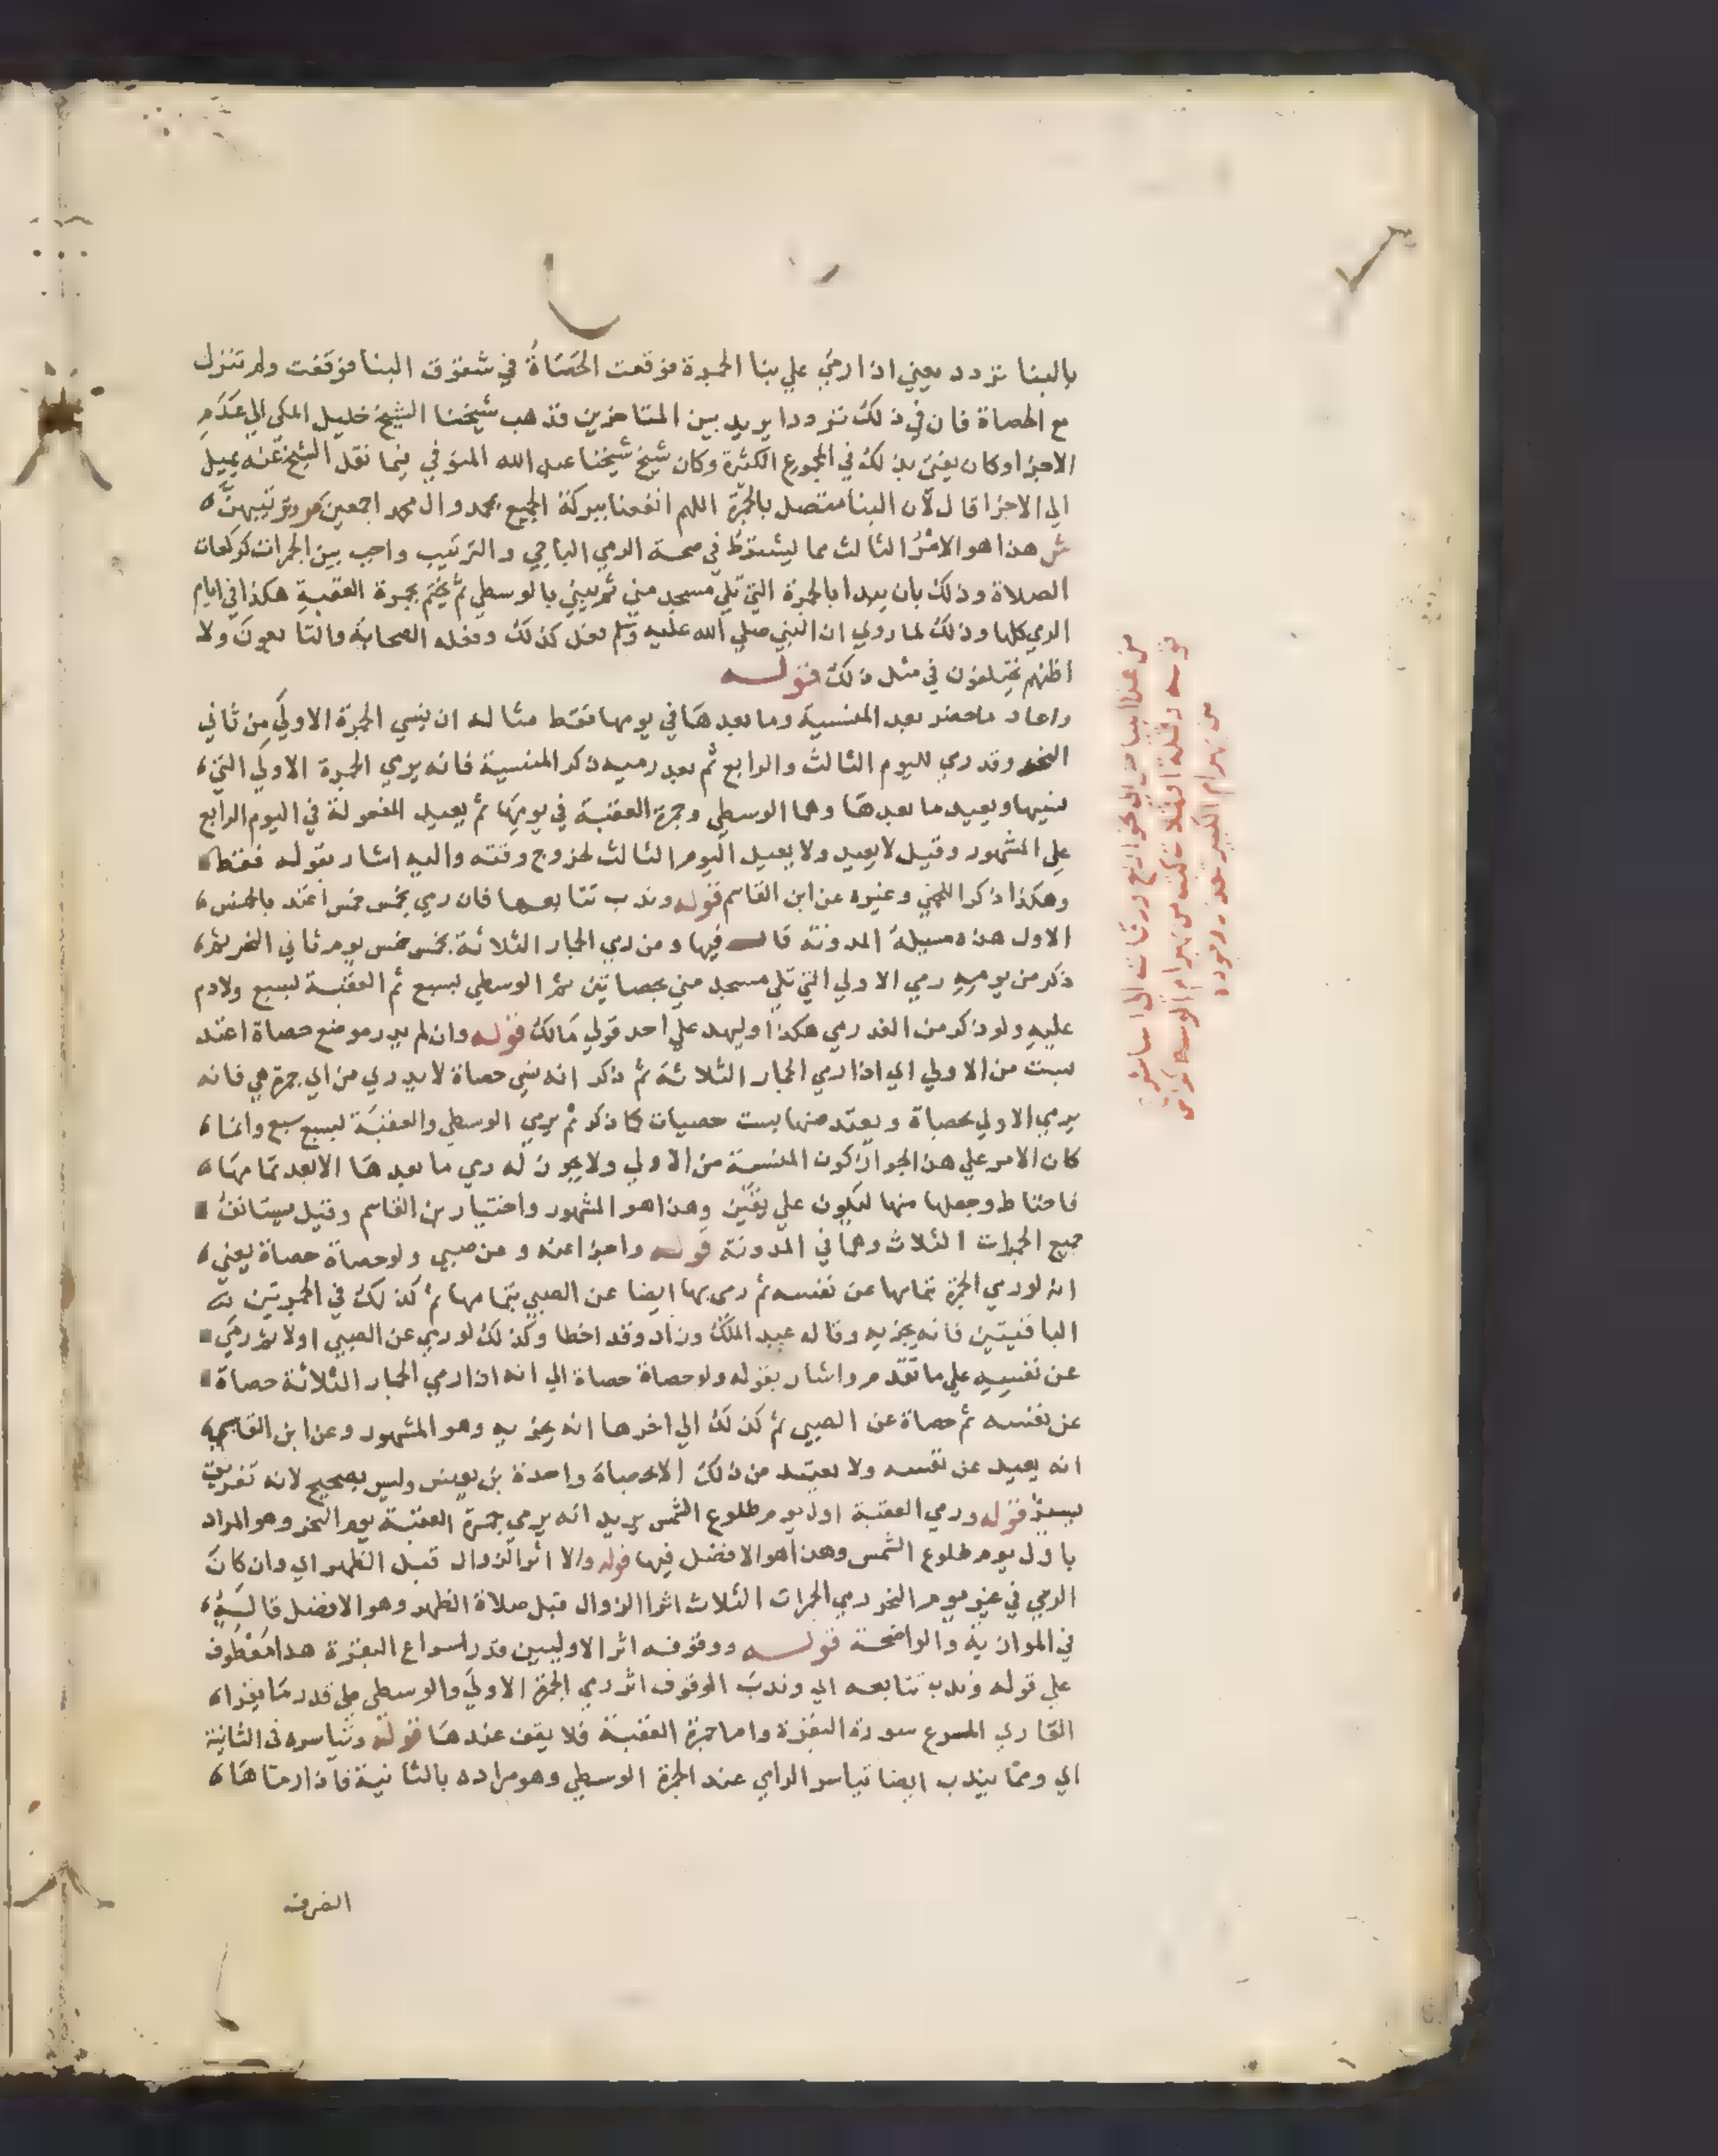 بالبنا تردد يعني اذا رمي علي بنا الجمرة فوقعت الحصاة في شقوق البنا فوقفت ولم تنزل
مع الحصاة فان في ذلك ترددا يريد بين المتاخرين فذهب شيخنا الشيخ خليل المكي الي عدم
الاجزا وكان يفتي بذلك في الجموع الكثيرة وكان شيخ شيخنا عبد الله المنوفي فيما نقل الشيخ عنه يميل
الي الاجزا قال لان البنا متصل بالجمرة اللهم انفعنا ببركة الجميع بمحمد وال محمد اجمعين ص وترتيبهن
ش هذا هو الامر الثالث مما يشترط في صحة الرمي الباقي والترتيب واجب بين الجمرات كركعات
الصلاة وذلك بان يبدا بالجمرة التي تلي مسجد مني ثم يثني بالوسطي ثم يختم بجمرة العقبة هكذا في ايام
الرمي كلها وذلك لما روي ان النبي صلي الله عليه وسلم فعل كذلك وفعله الصحابة والتابعون ولا
اظنهم يختلفون في مثل ذلك قوله
واعاد ما حضر بعد المنسية وما بعدها في يومها فقط مثاله ان ينسي الجمرة الاولي من ثاني
النحر وقد رمي لليوم الثالث والرابع ثم بعد رميه ذكر المنسية فانه يرمي الجمرة الاولي التي
نسيها ويعيد ما بعدها وهما الوسطي وجمرة العقبة في يومها ثم يعيد المفعولة في اليوم الرابع
علي المشهور وقيل لا يعيد ولا يعيد اليوم الثالث لخروج وقته واليه اشار بقوله فقط
وهكذا ذكر اللخمي وغيره عن ابن القاسم قوله وندب تتابعها فان رمي بخمس خمس اعتد بالخمس
الاول هذه مسيلة المدونة قال فيها ومن رمي الجمار الثلاثة بخمس خمس يوم ثاني النحر ثم
ذكر من يومه رمي الاولي التي تلي مسجد مني بحصاتين ثم الوسطي بسبع ثم العقبة بسبع ولا دم
عليه ولو ذكر من الغد رمي هكذا وليهد علي احد قولي مالك قوله وان لم يدر موضع حصاة اعتد
بست من الاولي اي اذا رمي الجمار الثلاثة ثم ذكر انه نسي حصاة لا يدري من اي جمرة هي فانه
يرمي الاولي بحصاة ويعتد منها بست حصيات كما ذكر ثم يرمي الوسطي والعقبة بسبع سبع وانما
كان الامر علي هذا لجواز كون المنسية من الاولي ولا يجوز له رمي ما بعدها الا بعد تمامها
فاحتاط وجعلها منها ليكون علي يقين وهذا هو المشهور واختيار بن القاسم وقيل يستانف
جميع الجمرات الثلاث وهما في المدونة قوله واجزا عنه وعن صبي ولو حصاة حصاة يعني
انه لو رمي الجمرة بتمامها عن نفسه ثم رمي بها ايضا عن الصبي بتمامها ثم كذلك في الجمرتين
الباقيتين فانه يجزيه وقاله عبد الملك وزاد وقد اخطا وكذلك لو رمي عن الصبي اولا ثم رمي
عن نفسه علي ما تقدم واشار بقوله ولو حصاة حصاة الي انه اذا رمي الجمار الثلاثة حصاة
عن نفسه ثم حصاة عن الصبي ثم كذلك الي اخرها انه يجزيه وهو المشهور وعن ابن القابسي
انه يعيد عن نفسه ولا يعتد من ذلك الا بحصاة واحدة بن يونس وليس بصحيح لانه تفريق
يسير قوله ورمي العقبة اول يوم طلوع الشمس يريد انه يرمي جمرة العقبة يوم النحر وهو المراد
باول يوم طلوع الشمس وهذا هو الافضل فيها قوله والا اثر الزوال قبل الظهر اي وان كان
الرمي في غير يوم النحر رمي الجمرات الثلاث اثر الزوال قبل صلاة الظهر وهو الافضل قاله
في الموازية والواضحة قوله ووقوفه اثر الاوليين قدر اسراع البقرة هذا معطوف
علي قوله وندب تتابعه اي وندب الوقوف اثر رمي الجمرة الاولي والوسطي علي قدر ما يقرا
القاري المسرع سورة البقرة واما جمرة العقبة فلا يقف عندها قوله وتياسره في الثانية
اي ومما يندب ايضا تياسر الرامي عند الجمرة الوسطي وهو مراده بالثانية فاذا رماها
انصرف
من هذا البياض الي نحو اربع ورقات الي
قوله وقلة كتب من بهرام الوسط
من بهرام الكبير